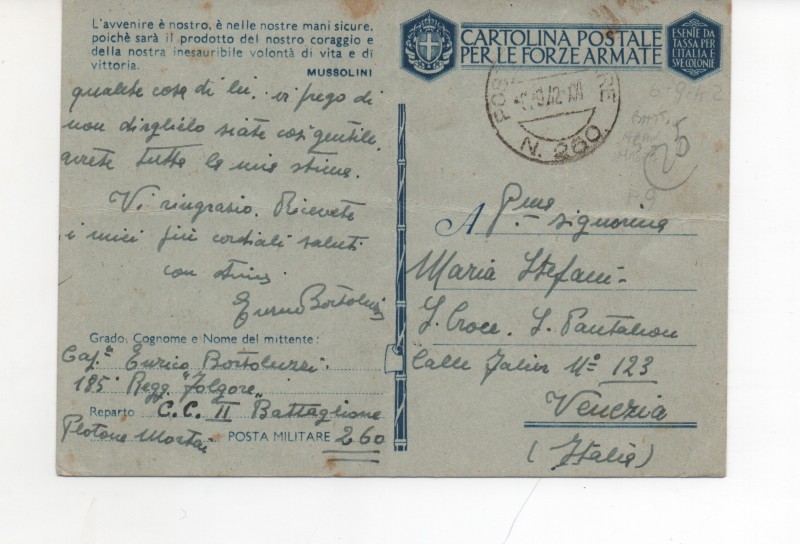 L'avvenire è nostro, è nelle nostre mani sicure,
poichè sarà il prodotto del nostro coraggio e
della nostra inesauribile volontà di vita e di
vittoria.
MUSSOLINI
qualche cosa di lui. vi prego di
non dirglielo siate così gentile
avrete tutta la mia stima.
Vi ringrazio. Ricevete
i miei più cordiali saluti
con stima
Enrico Bortoluzzi
Grado, Cognome e Nome del mittente:
Cap.le Enrico Bortoluzzi
185 Regg. "Folgore"
Reparto C.C. II Battaglione
Plotone Mortai POSTA MILITARE 260
CARTOLINA POSTALE
PER LE FORZE ARMATE
ESENTE DA
TASSA PER
L'ITALIA E
SVE COLONIE
N. 260
6-9-42
25
P.9
A
signorina
Maria Stefani
S. Croce. S. Pantalion
Calle Falier N° 123
Venezia
(Italia)